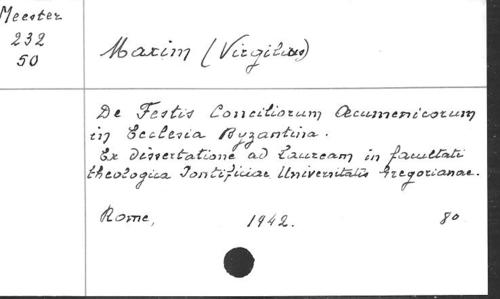 Meester
232
50
Maxim (Virgilius)
De Festis Conciliorum Œcumenicorum
in Ecclesia Byzantina.
Ex dissertatione ad Lauream in facultati
theologica Pontificiae Universitatis Gregorianae.
Rome, 1942. 8o